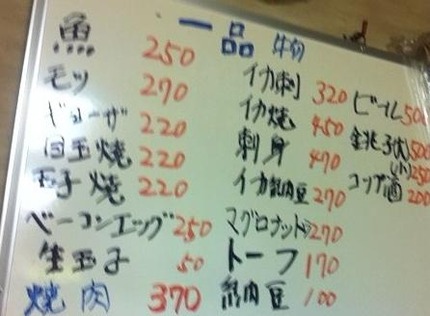 一品物
魚 250
モツ 270
ギョーザ 220
目玉焼 220
玉子焼 220
ベーコンエッグ 250
生玉子 50
焼肉 370
イカ刺 320
イカ焼 450
刺身 470
イカ納豆 270
マグロナットウ 270
トーフ 170
納豆 100
ビール 500
銚子(大) 500
(小) 250
コップ酒 200